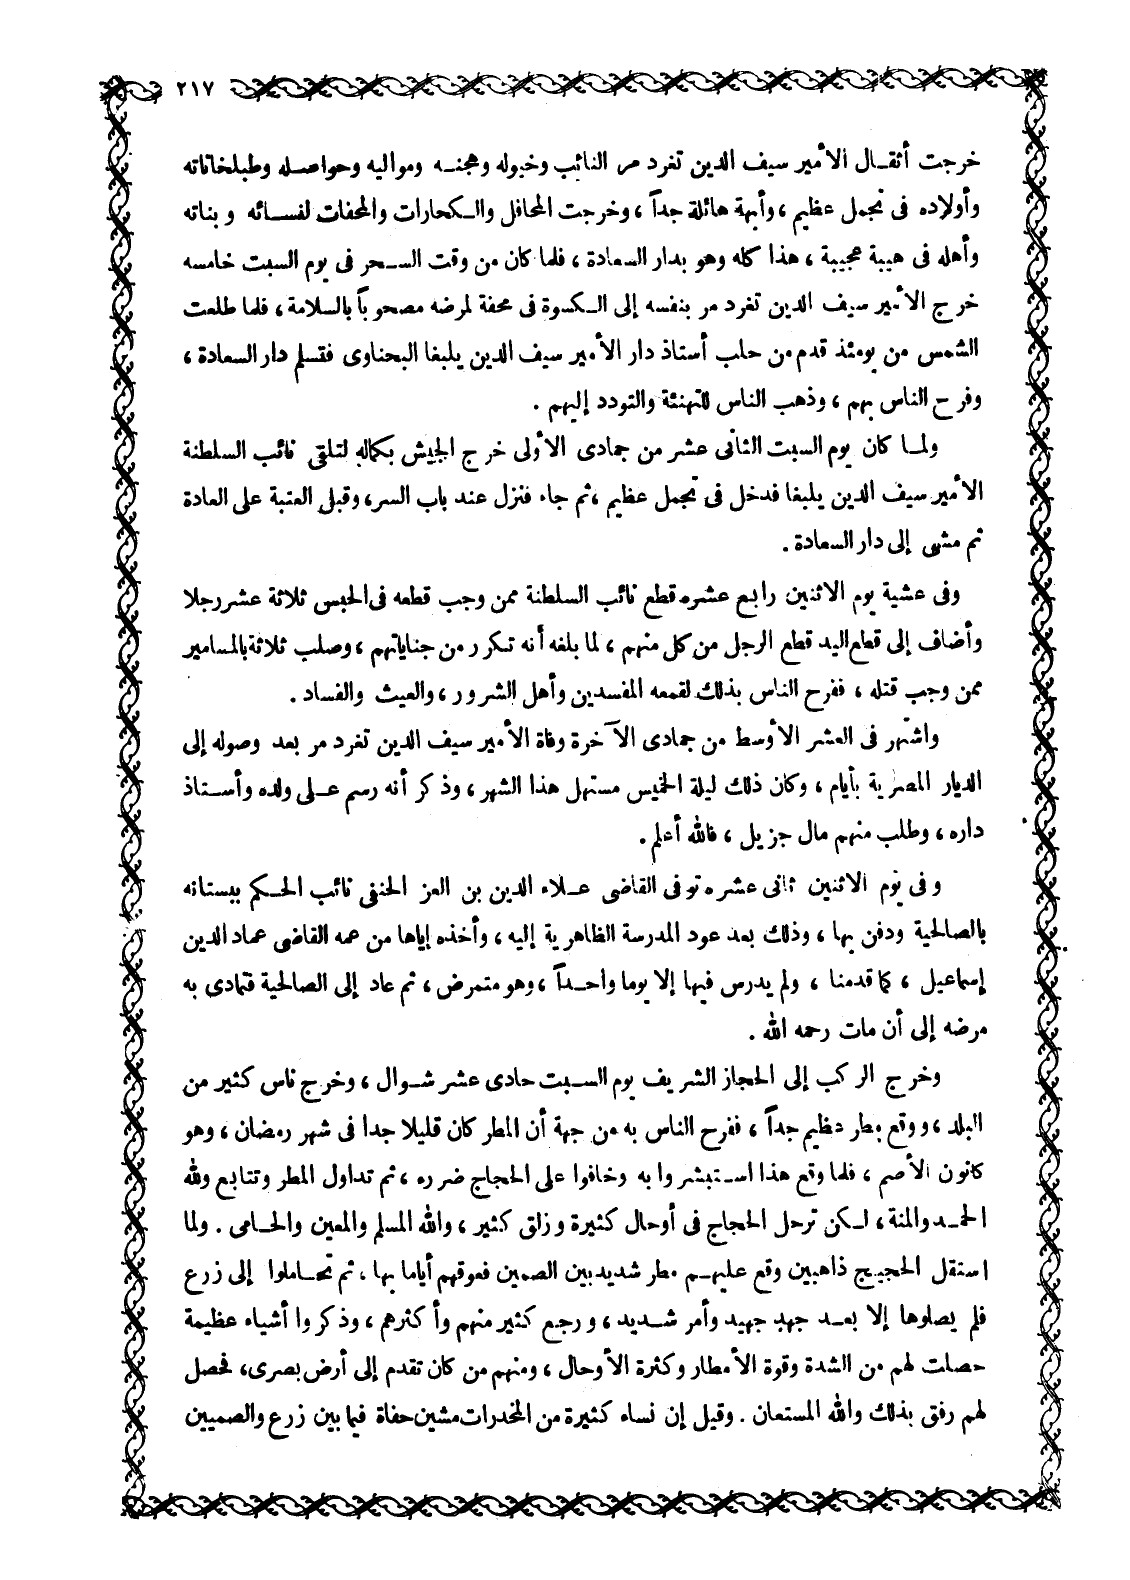 ٢١٧
خرجت أثقال الأمير سيف الدين تغرد مر النائب وخيوله وهجنه ومواليه وحواصله وطبلخاناته
وأولاده فى تجمل عظيم ، وأبهة هائلة جداً ، وخرجت المحافل والكحارات والمحفات لنسائه وبناته
وأهله فى هيبة عجيبة ، هذا كله وهو بدار السعادة ، فلما كان من وقت السحر فى يوم السبت خامسه
خرج الأمير سيف الدين تغرد مر بنفسه إلى الكسوة فى محفة لمرضه مصحوباً بالسلامة ، فلما طلعت
الشمس من يومئذ قدم من حلب أستاذ دار الأمير سيف الدين يلبغا البحناوى فتسلم دار السعادة ،
وفرح الناس بهم ، وذهب الناس للتهنئة والتودد إليهم .
ولما كان يوم السبت الثانى عشر من جمادى الأولى خرج الجيش بكماله لتلقى نائب السلطنة
الأمير سيف الدين يلبغا فدخل فى تجمل عظيم ، ثم جاء فنزل عند باب السر ، وقبل العتبة على العادة
ثم مشى إلى دار السعادة .
وفى عشية يوم الاثنين رابع عشره قطع نائب السلطنة ممن وجب قطعه فى الحبس ثلاثة عشر رجلا
وأضاف إلى قطع اليد قطع الرجل من كل منهم ، لما بلغه أنه تكرر من جناياتهم ، وصلب ثلاثة بالمسامير
ممن وجب قتله ، ففرح الناس بذلك لقمعه المفسدين وأهل الشرور ، والعيث والفساد .
واشتهر فى العشر الأوسط من جمادى الآخرة وفاة الأمير سيف الدين تغرد مر بعد وصوله إلى
الديار المصرية بأيام ، وكان ذلك ليلة الخميس مستهل هذا الشهر ، وذكر أنه رسم على ولده وأستاذ
داره ، وطلب منهم مال جزيل ، فالله أعلم .
وفى يوم الاثنين ثانى عشره توفى القاضى علاء الدين بن العز الحنفى نائب الحكم ببستانه
بالصالحية ودفن بها ، وذلك بعد عود المدرسة الظاهرية إليه ، وأخذه إياها من عمه القاضى عماد الدين
إسماعيل ، كما قدمنا ، ولم يدرس فيها إلا يوما واحداً ، وهو متمرض ، ثم عاد إلى الصالحية فتمادى به
مرضه إلى أن مات رحمه الله .
وخرج الركب إلى الحجاز الشريف يوم السبت حادى عشر شوال ، وخرج ناس كثير من
البلد ، ووقع مطر عظيم جداً ، ففرح الناس به من جهة أن المطر كان قليلا جدا فى شهر رمضان ، وهو
كانون الأصم ، فلما وقع هذا استبشروا به وخافوا على الحجاج ضرره ، ثم تداول المطر وتتابع ولله
الحمد والمنة ، لكن ترحل الحجاج فى أوحال كثيرة وزلق كثير ، والله المسلم والمعين والحامى . ولما
استقل الحجيج ذاهبين وقع عليهم مطر شديد بين الصمين فعوقهم أياما بها ، ثم تحاملوا إلى زرع
فلم يصلوها إلا بعد جهد جهيد وأمر شديد ، ورجع كثير منهم وأكثرهم ، وذكروا أشياء عظيمة
حصلت لهم من الشدة وقوة الأمطار وكثرة الأوحال ، ومنهم من كان تقدم إلى أرض بصرى ، فحصل
لهم رفق بذلك والله المستعان . وقيل إن نساء كثيرة من المخدرات مشين حفاة فيما بين زرع والصميين